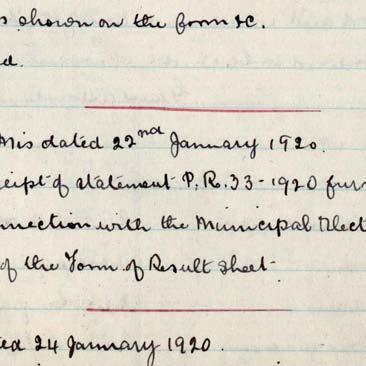 s shown on the form &c.
ed.
Mis dated 22nd January 1920.
ceipt of statement P.R. 33-1920 fur
nnection with the Municipal Elect
of the Form of Result Sheet
ted 24 January 1920.